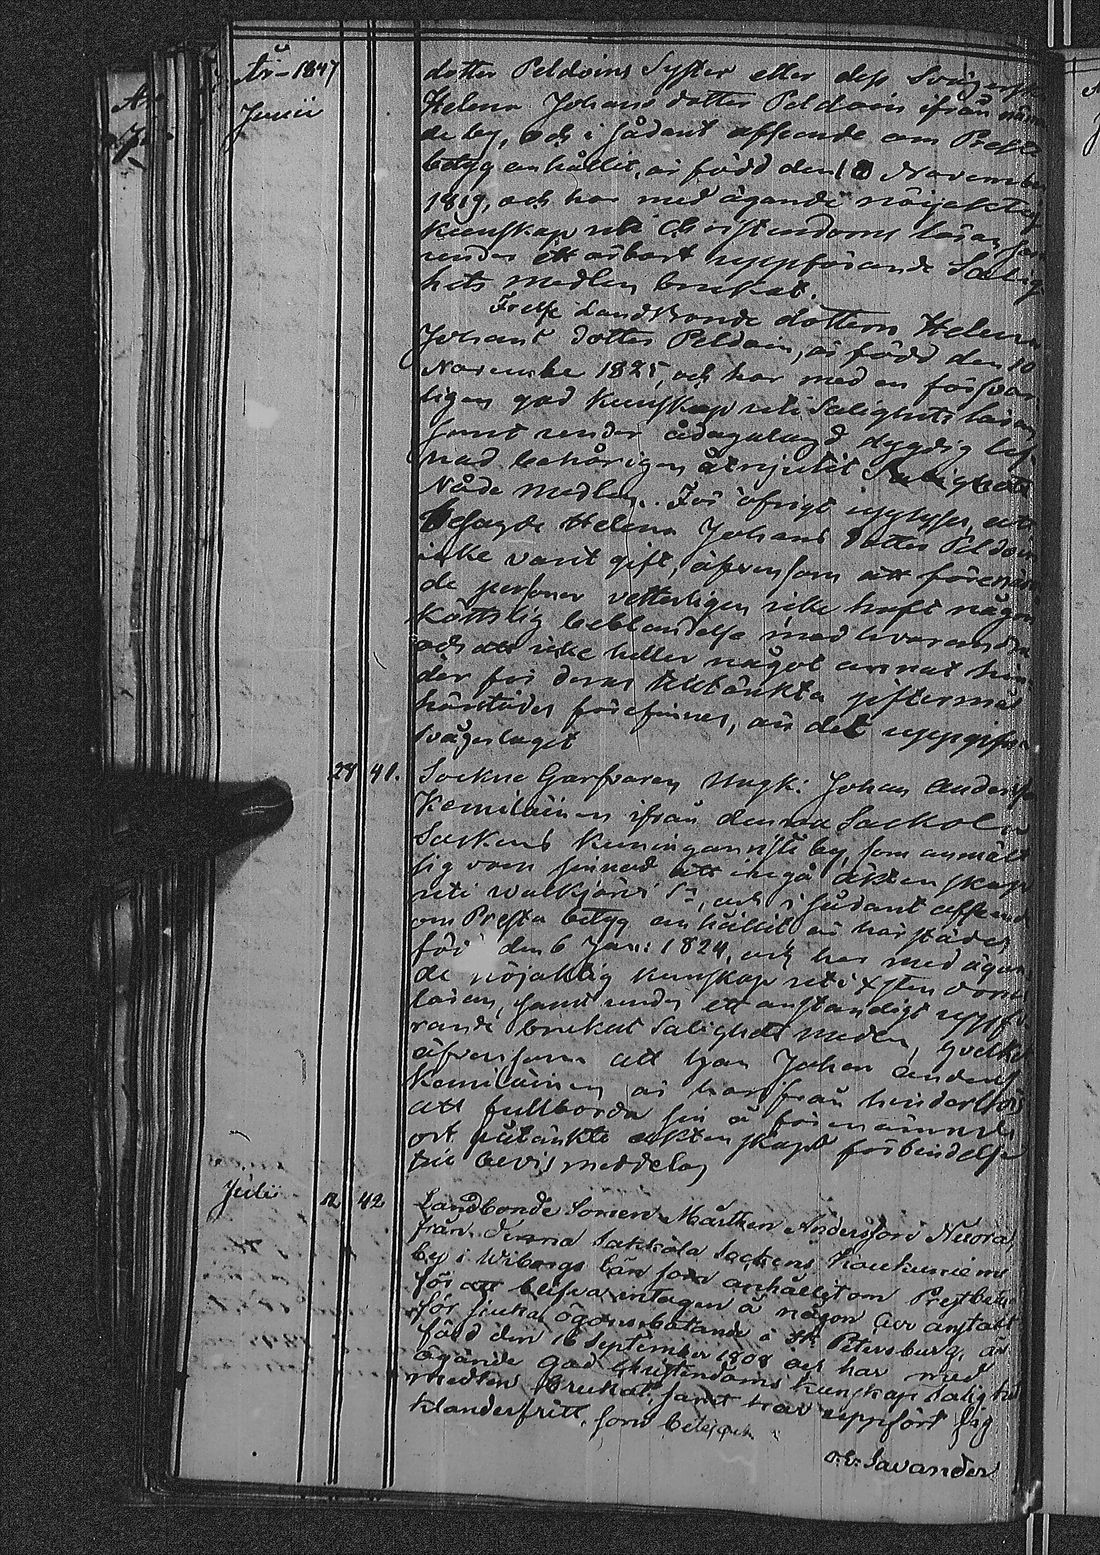 1847
Junii
dotter Peldoins Syster eller dess Svägerska
Helena Johans dotter Peldoin ifrån
by, och i sådant afseende om Prest
betyg anhållit, är född den 10 November
1819, och har med ägande nöjaktig
kunskap uti Christendoms läran
under ett ärbart uppförande Salig
hets medlen brukat.
Landbonde dottern Helena
Johans dotter Peldoin, är född den 10
November 1825, och har med en försvar
ligen god kunskap uti Salighets läran
samt under ådagalagd dygdig lef
nad behörigen åtnjutit Salighets
Nåde medlen. För öfrigt upplyses, att
besagde Helena Johans dotter Peldoin
icke varit gift, äfvensom att förenämn
de personer vetterligen icke haft någon
köttslig beblandelse med hvarandra
och att icke heller något annat hin
der för deras tilltänkta giftermål
härstädes förefinnes, än det uppgifne
svågerlaget
28 41. Sockne Garfvaren Ungk: Johan Anders
Kemiläinen ifrån denna Sackola
Sockens by, som anmält
sig vara sinnad att ingå äktenskap
uti Walkjärvi Sn, och i sådant afseende
om Presta betyg anhållit är härstädes
född den 6 Jan: 1824, och har med ägan
de nöjaktig kunskap uti Xsten doms
läran, samt under ett anständigt uppfö
rande brukat Salighets medlen, hvilket
äfvensom att han Johan Anders
Kemiläinen är härifrån hinderlös
att fullborda sin å förenämnde
ort påtänkte äktenskaps förbindelse
till bevis meddelas
Julii 12 42 Landbonde Sonen Mårthen Andersson Nuora,
från denna Sakkola Sockens Haukuniemi
by i Wiborgs län som anhållit om Prestbetyg
för att blifva intagen å någon läro anstalt
för sjuka ögons botande i St Petersburg, är
född den 16 September 1808 och har med
ägande god Christendoms kunskap Salighets
medlen brukat, samt har uppfört sig
klanderfritt, som betygar
Savander